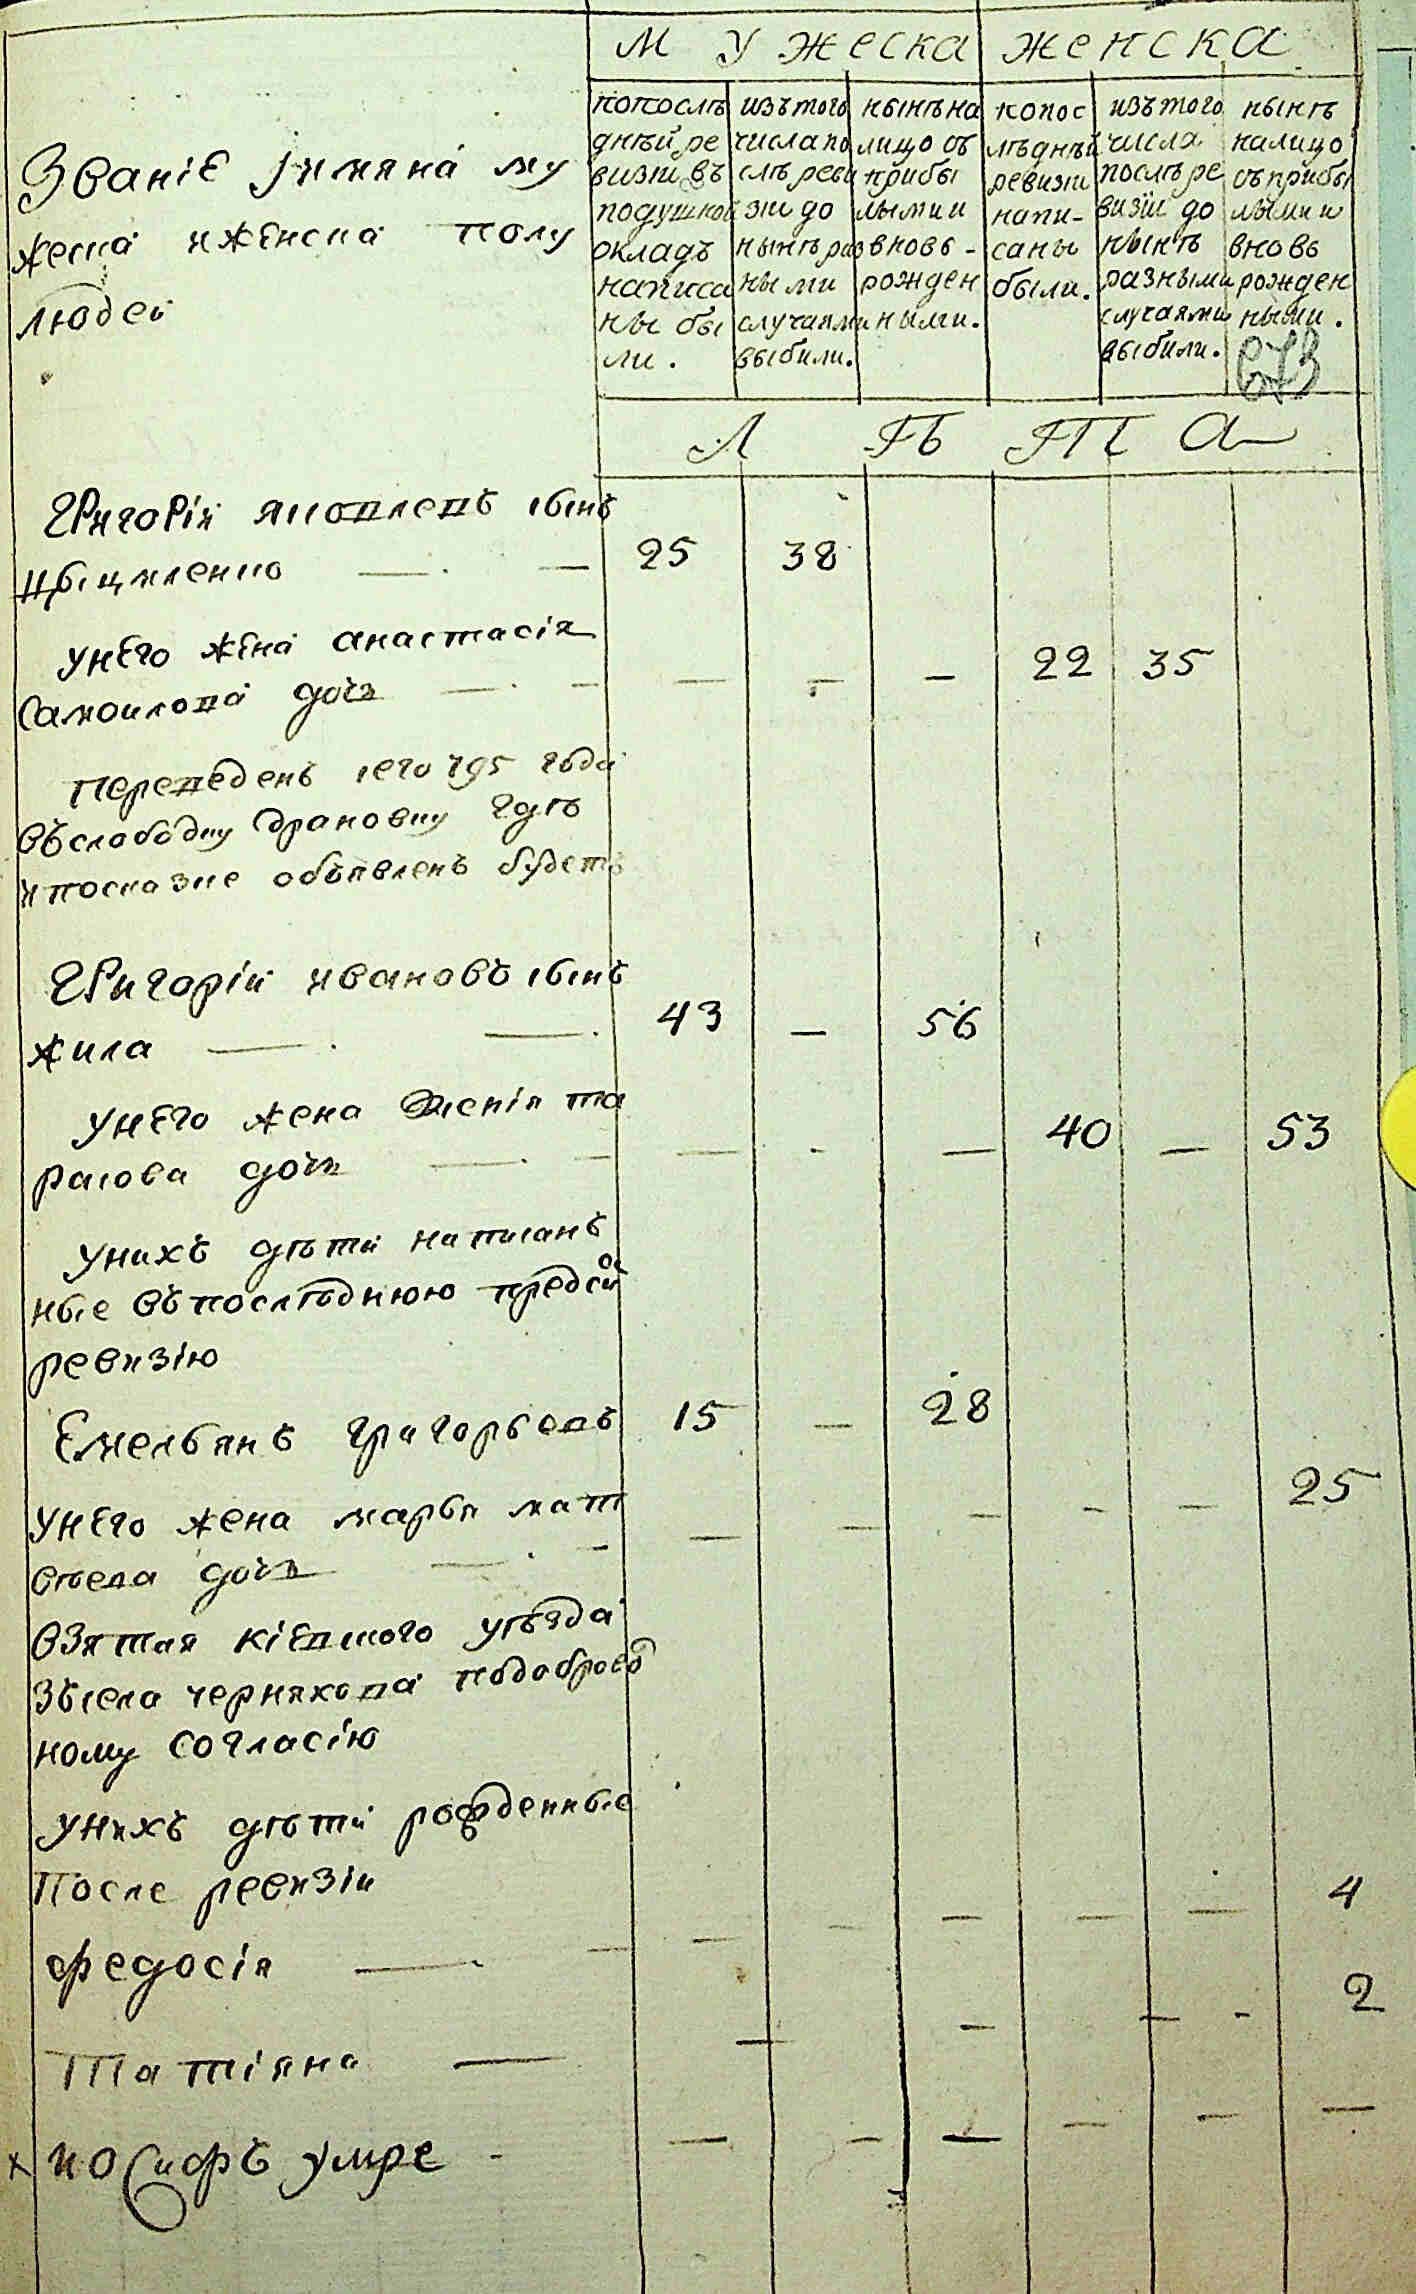 Мужеска женска
Званіе имяна му
жеска иженска полу
людей
попослѣ
днѣй ре
визіи въ
подушной
окладъ
написа
ны бы
ли.
изътого
числа по
слѣ реви
зіи до
нынѣ раз
ными
случаями
выбили.
нынѣ на
лицо съ
прибы
лыми и
вновь-
рожден
ными.
попос
лѣднѣй
ревизіи
напи-
саны
были.
изътого
числа
послѣ ре
визіи до
нынѣ
разными
случаями
выбили.
нынѣ
налицо
съприбы
лыми и
вновь
рожден
ными.
673
Лѣта
Григорій яковлевъ сынъ
— — 25 38
унего жена анастасія
Самоилова дочь — — — — — 22 35
Переведенъ сего 795 года
въслободку Драновку гдѣ
ипосказке объявленъ будетъ
Григорій ивановъ сынъ
жила — — 43 — 56
унего жена та
расова дочь — — — — — 40 — 53
унихъ дѣти написанъ
ные въпослѣднюю предсей
ревизію
Емельянъ григорьевъ 15 — 28
унего жена марья мат
вѣева дочь — — — — — — — 25
взятая кіевскаго уѣзда
зъсела черняхова подоброво
ному согласію
унихъ дѣти рожденные
После ревизіи
федосія — — — — — — — 4
Татіяна — — — — — 2
х иосифъ умре - — — — — — —